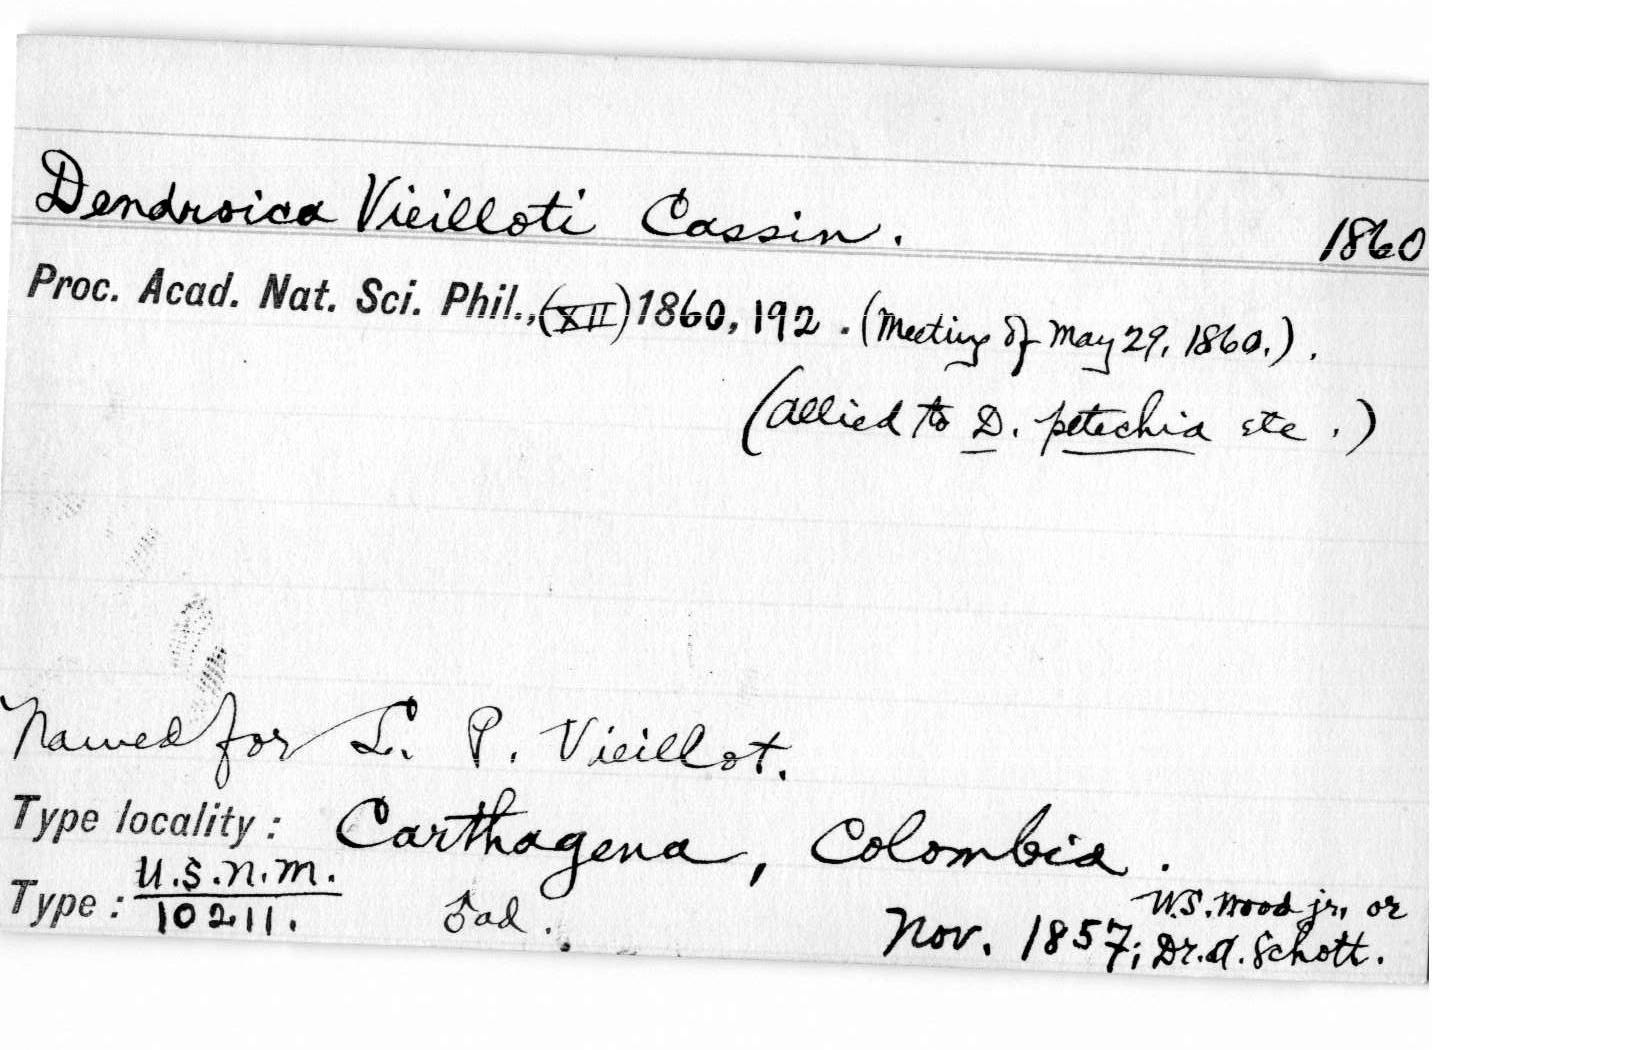 Dendroica Vieilloti Cassin. 1860
Proc. Acad. Nat. Sci. Phil., (XII) 1860, 192. (Meeting of May 29, 1860.).
(allied to D. petechia etc.)
Named for L. P. Vieillot.
Type locality: Carthagena, Colombia.
Type: U.S.N.M. 10211. ♂ ad. Nov. 1857; W.S. Wood jr, or Dr. A. Schott.